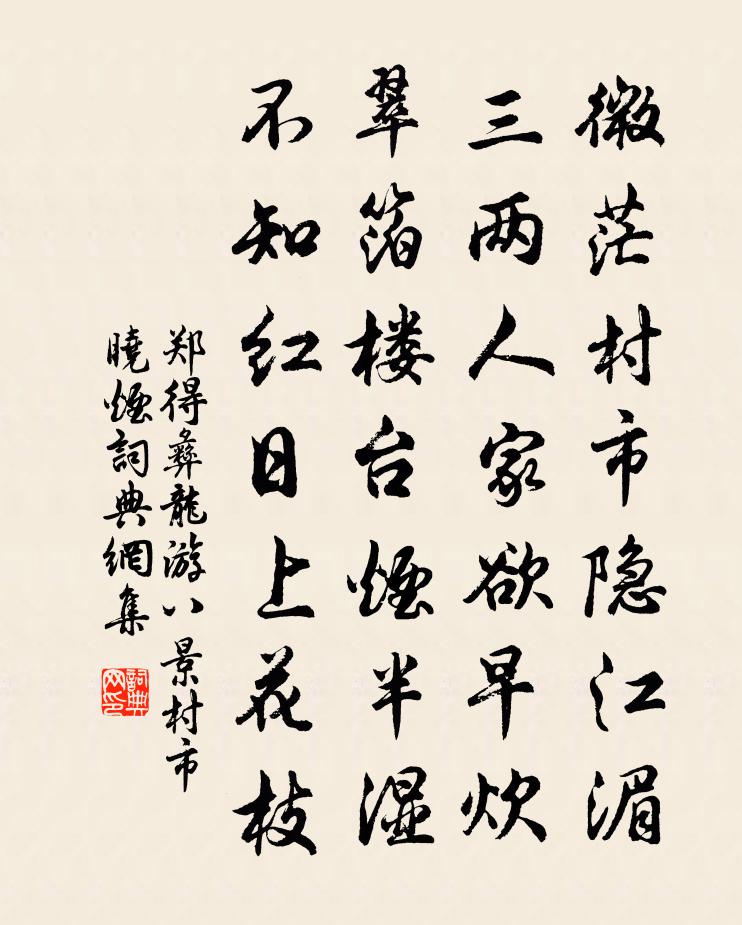 微茫村市隐江湄
三两人家欲早炊
翠箔楼台烟半湿
不知红日上花枝
郑得彝龍游八景村市
曉烟詞典網集
詞典
网印